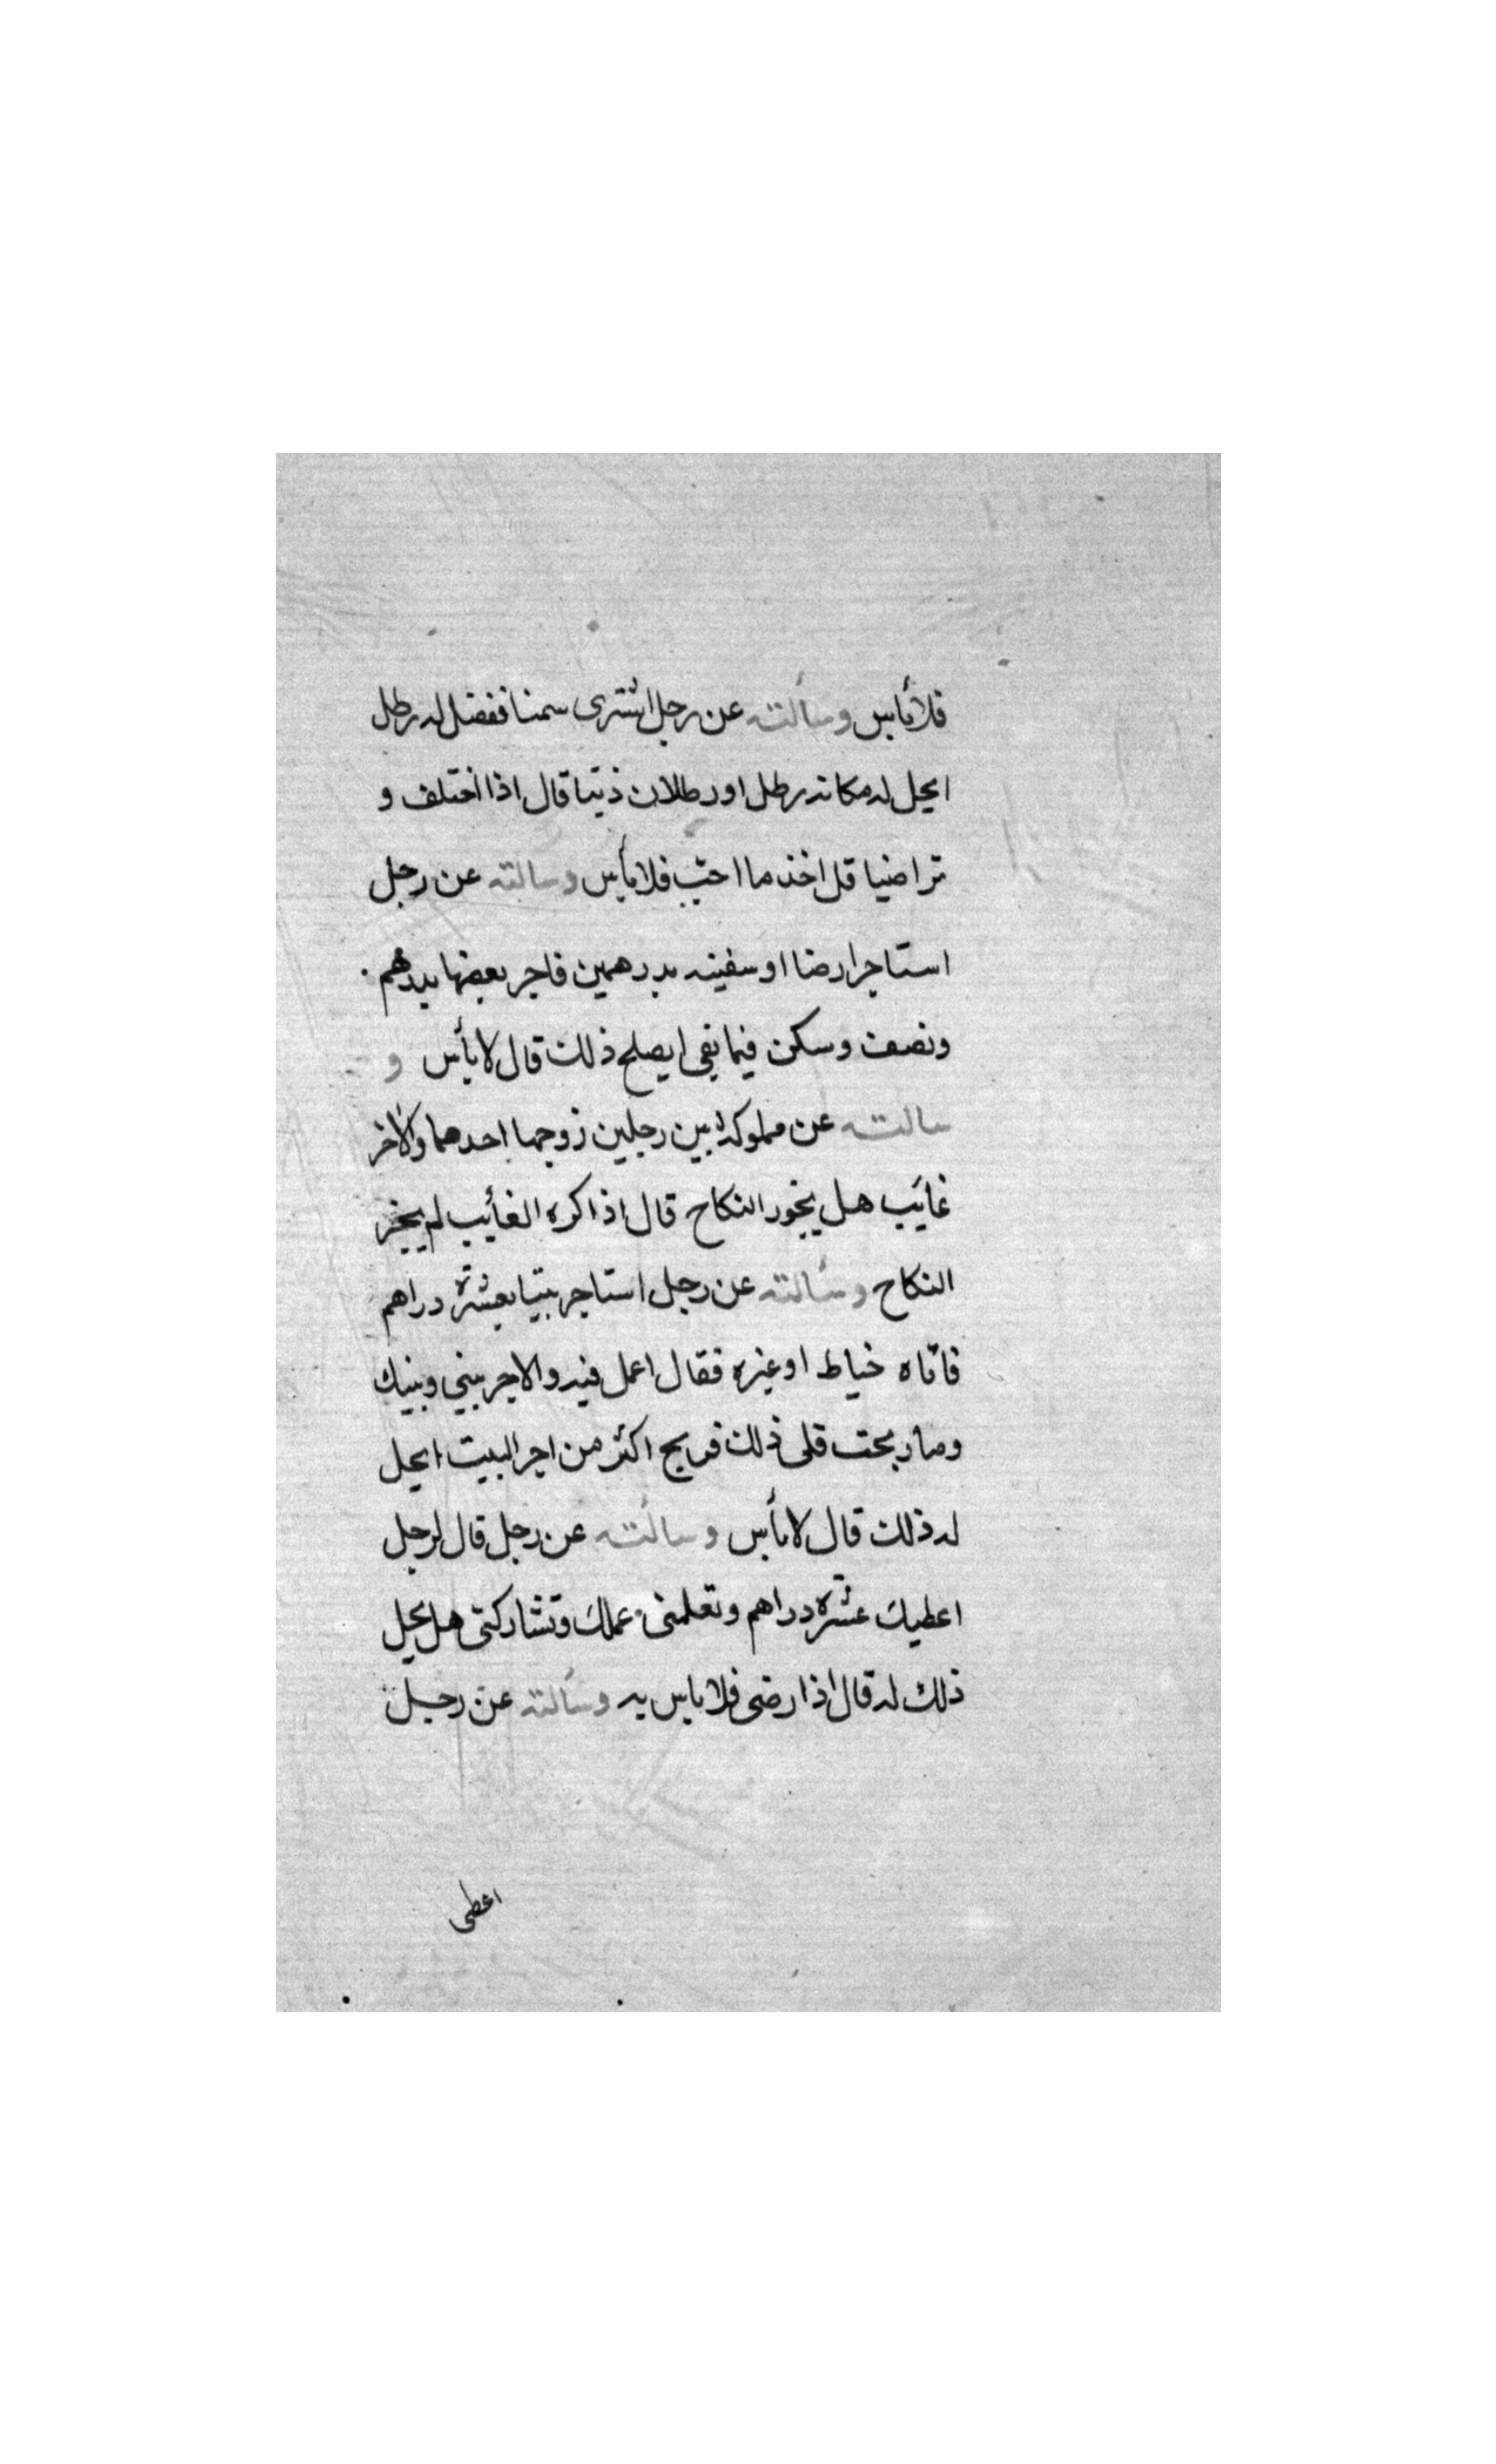 فلا بأس وسألته عن رجل اشترى سمنا ففضل له رطل
ايحل له مكانه رطل اورطلان زيتا قال اذا اختلف و
تراضيا فلاخذ ما احب فلا بأس وسالته عن رجل
استاجرارضا اوسفينه بدرهمين فاجر بعضها بدرهم
ونصف وسكن فيما بقى ايصلح ذلك قال لا بأس و
سالته عن مملوكة بين رجلين زوجها احدهما والاخر
غائب هل يجوز النكاح قال اذا كره الغائب لم يجز
النكاح وسألته عن رجل استاجر بيتا بعشرة دراهم
فاتاه خياط اوغيره فقال اعمل فيه والاجر بيني وبينك
وما ربحت فلى ذلك فربح اكثر من اجر البيت ايحل
له ذلك قال لا بأس وسالته عن رجل قال لرجل
اعطيك عشرة دراهم وتعلمنى عملك وتشاركنى هل يحل
ذلك له قال اذا رضى فلا باس به وسألته عن رجل
اعطى